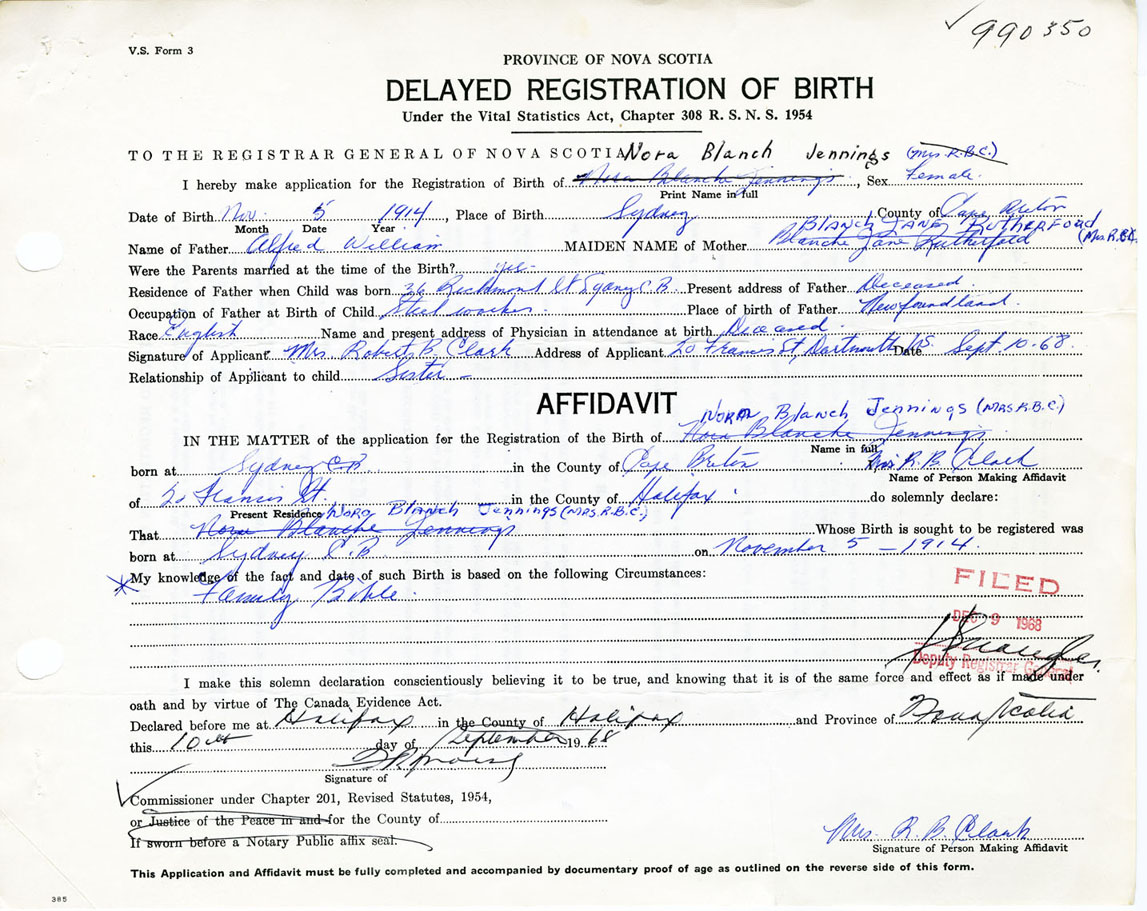 990350
V.S. Form 3
PROVINCE OF NOVA SCOTIA
DELAYED REGISTRATION OF BIRTH
Under the Vital Statistics Act, Chapter 308 R. S. N. S. 1954
TO THE REGISTRAR GENERAL OF NOVA SCOTIA Nora Blanch Jennings (Mrs. R.B.C.)
I hereby make application for the Registration of Birth of Nora Blanche Jennings, Sex Female.
Print Name in full
Date of Birth Nov. 5 1914, Place of Birth Sydney County of Cape Breton
Month Date Year BLANCH JANE RUTHERFORD
Name of Father Alfred William MAIDEN NAME of Mother Blanche Jane Rutherford (Mrs R.B.C.)
Were the Parents married at the time of the Birth? yes.
Residence of Father when Child was born 36 Richmont St Sydney C.B. Present address of Father Deceased.
Occupation of Father at Birth of Child Steel worker. Place of birth of Father Newfoundland.
Race English Name and present address of Physician in attendance at birth Deceased.
Signature of Applicant Mrs Robert B. Clark Address of Applicant 20 Francis St, Dartmouth NS. Date Sept 10-68.
Relationship of Applicant to child Sister -
AFFIDAVIT NORA Blanch Jennings (MRS R.B.C.)
IN THE MATTER of the application for the Registration of the Birth of Nora Blanche Jennings
Name in full
born at Sydney C.B in the County of Cape Breton Mrs. R. B. Clark
Name of Person Making Affidavit
of 20 Francis St. in the County of Halifax. do solemnly declare:
Present Residence Nora Blanch Jennings (MRS R.B.C.)
That Nora Blanche Jennings Whose Birth is sought to be registered was
born at Sydney C.B on November 5 - 1914.
My knowledge of the fact and date of such Birth is based on the following Circumstances:
Family Bible.
FILED
DEC 9 1968
Deputy Registrar General
I make this solemn declaration conscientiously believing it to be true, and knowing that it is of the same force and effect as if made under
oath and by virtue of The Canada Evidence Act.
Declared before me at Halifax in the County of Halifax and Province of Nova Scotia
this 10th day of September 1968
Signature of
Commissioner under Chapter 201, Revised Statutes, 1954,
or Justice of the Peace in and for the County of
If sworn before a Notary Public affix seal.
Mrs. R. B. Clark
Signature of Person Making Affidavit
This Application and Affidavit must be fully completed and accompanied by documentary proof of age as outlined on the reverse side of this form.
385